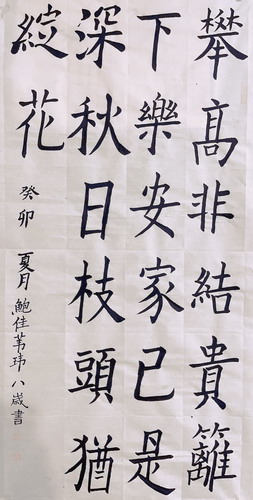 攀高非結貴籬
下樂安家已是
深秋日枝頭猶
綻花
癸卯
夏月鮑佳苇玮八歲書